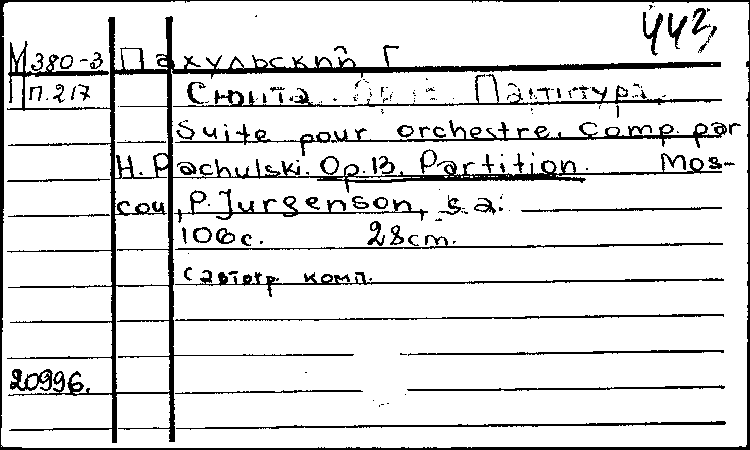 443
М380-3 Пахульский Г
П п.217 Сюита. Op 13 Партитура.
Suite pour orchestre. Comp. par
H. Pachulski. Op. 13. Partition. Mos-
cou, P. Jurgenson, s. a.
106 с. 28 cm.
с автогр. комп.
20996.